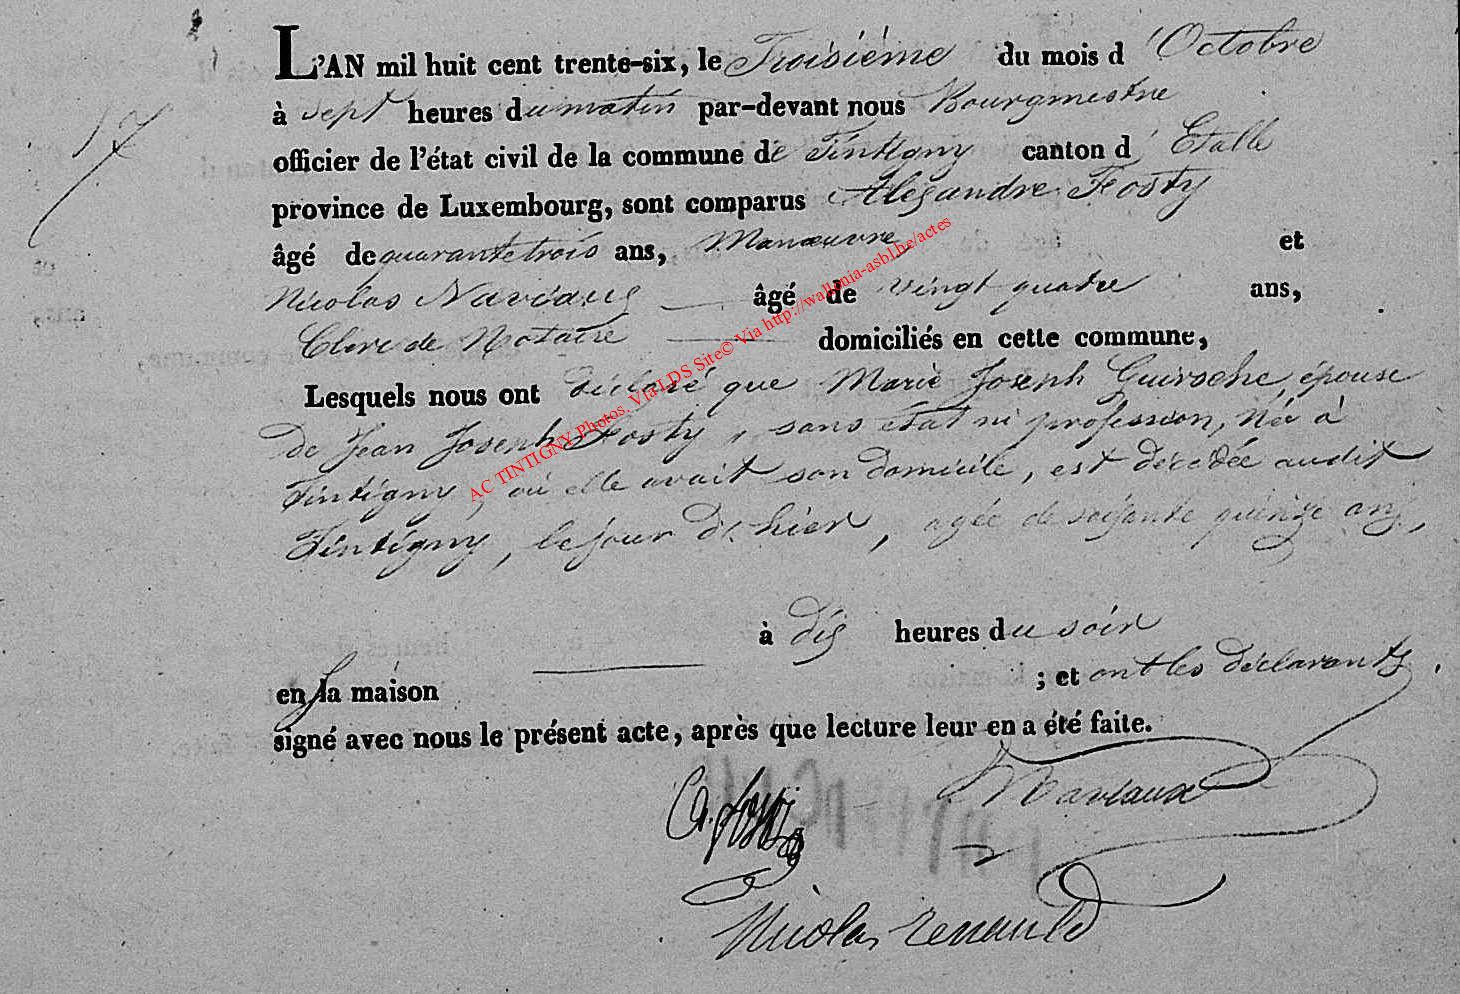 L'AN mil huit cent trente-six, le Troisiéme du mois d'Octobre
17
à Sept heures du matin par-devant nous Bourgmestre
officier de l'état civil de la commune de Tintigny canton d'Etalle
province de Luxembourg, sont comparus Alexandre Fosty
âgé de quarante trois ans, Manœuvre et
Nicolas Naviaux âgé de vingt quatre ans,
Clerc de Notaire domiciliés en cette commune,
Lesquels nous ont déclaré que Marie Joseph Guiroche, épouse
de Jean Joseph Fosty, sans état ni profession, née à
Tintigny, où elle avait son domicile, est décédée audit
Tintigny, le jour d'hier, agée de soixante quinze ans,
à dix heures du soir
en sa maison ; et ont les déclarants,
signé avec nous le présent acte, après que lecture leur en a été faite.
A. fosty Naviaux
Nicolas renauld
AC TINTIGNY Photos. Via LDS Site© Via http://wallonia-asbl.be/actes